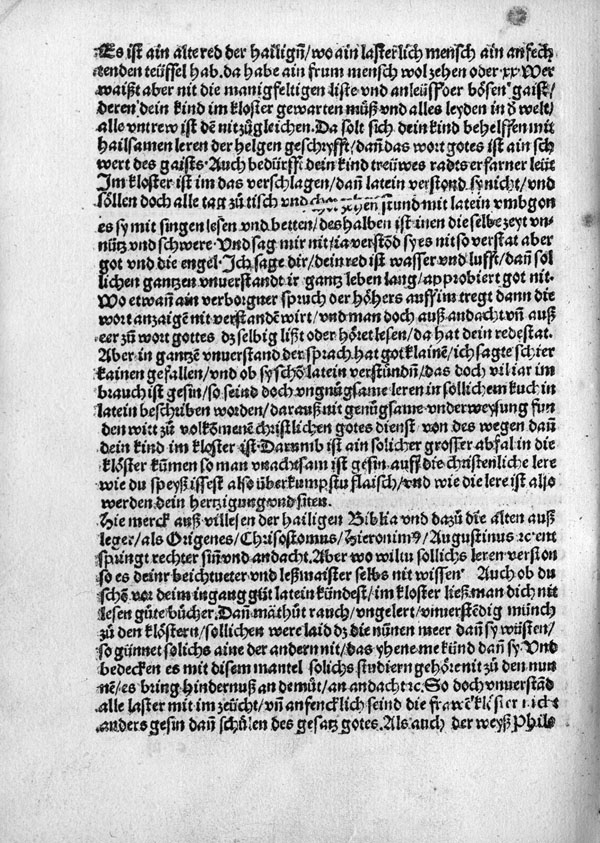 Es ist ain alte red der hailigñ/wo ain lasterlich mensch ain anfech
tenden teüffel hab. da habe ain frum mensch wol zehen oder xx. Wer
waißt aber nit die manigfeltigen liste vnd anleüff der bösen gaist/
deren dein kind im kloster gewarten můß vnd alles leyden in d welt/
alle vntrew ist dē nit zůgleichen. Da solt sich dein kind behelffen mit
hailsamen leren der helgen geschryfft/dañ das wort gotes ist ain sch
wert des gaists. Auch bedürfft dein kind treüwes radts erfarner leüt
Im kloster ist im das verschlagen/dañ latein verstond sy nicht/vnd
söllen doch alle tag zů tisch vnd zehen stund mit latein vmbgon
es sy mit singen lesen vnd betten/deshalben ist inen die selbe zeyt vn-
nütz vnd schwere. Vnd sag mir nit/ia verstōd sy es nit so verstat aber
got vnd die engel. Ich sage dir/dein red ist wasser vnd lufft/dañ sol
lichen gantzen vnuerstandt ir gantz leben lang/approbiert got nit.
Wo etwañ ain verborgner spruch der höhers auff im tregt dann die
wort anzaigē nit verstandē wirt/vnd man doch auß andacht vñ auß
eer zů wort gottes dz selbig lißt oder höret lesen/da hat dein rede stat.
Aber in gantzē vnuerstand der sprach hat got klainē/ich sagte schier
kainen gefallen/vnd ob sy schō latein verstündñ/das doch vil iar im
brauch ist gesin/so seind doch vngnůgsame leren in sollichem kuch in
latein beschriben worden/darauß nit genůgsame vnderweysung fun
den witt zů volkōmenē christlichen gotes dienst von des wegen dann
dein kind im kloster ist. Darumb ist ain solicher grosser abfal in die
klöster kum̄en so man vnachtsam ist gesin auff die christenliche lere
wie du speyß issest also überkumpstu flaisch/vnd wie die lere ist also
werden dein hertzigung vnd siten.
Hie merck auß vil lesen der hailigen Biblia vnd dazů die alten auß
leger/als Origenes/Chrisostomus/Hieronimꝰ/Augustinus ꝛc ent
springt rechter sinn vnd andacht. Aber wo wiltu sollichs leren verston
so es deinr beichtueter vnd leßmaister selbs nit wissen Auch ob du
schō vor deim ingang gůt latein kündest/im kloster ließ man dich nit
lesen gůte bücher. Dañ mā thůt rauch/vngelert/vnuerstēdig münch
zů den klöstern/sollichen were laid dz die nūnen meer dañ sy wüsten/
so günnet solichs aine der andern nit/das yhene me künd dañ sy. Vnd
bedecken es mit disem mantel solichs studiern gehöre nit zů den nun
nē/es bring hindernuß an demůt/an andacht ꝛc. So doch vnuerstād
alle laster mit im zeücht/vñ anfencklich seind die frawē klöster nicht
anders gesin dañ schůlen des gesatz gotes. Als auch der weyß Phils